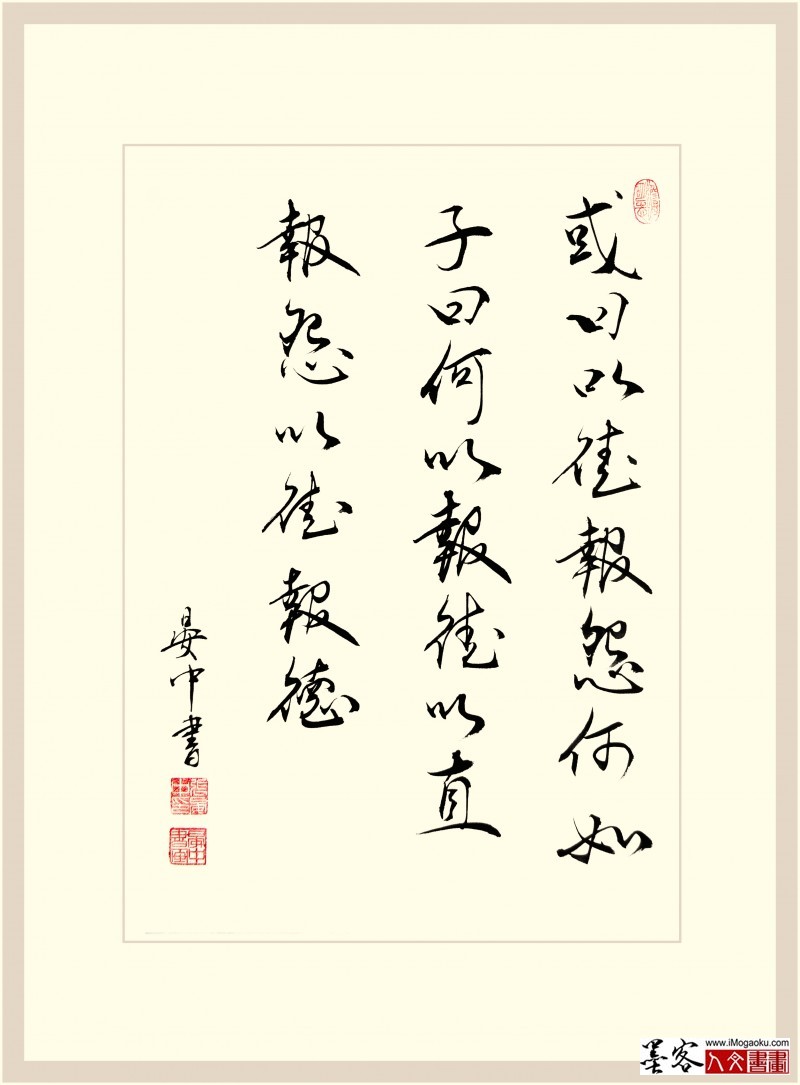 或曰以德報怨何如
子曰何以報德以直
報怨以德報德
晏中書
墨客
www.iMogaoku.com
人文書畫